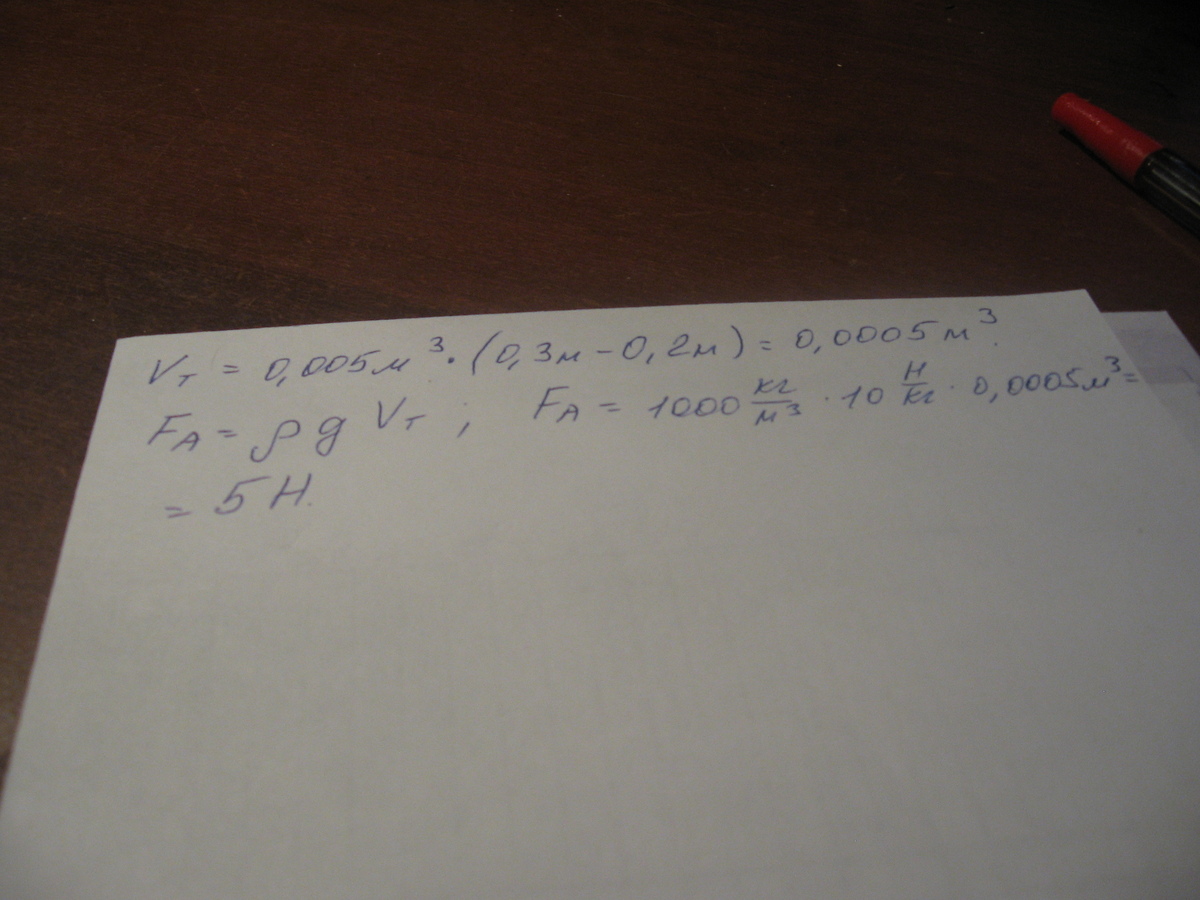 Vт = 0,005м³·(0,3м-0,2м) = 0,0005м³.
FA = ρgVт; FA = 1000 кг/м³ · 10 Н/кг · 0,0005м³=
= 5Н.